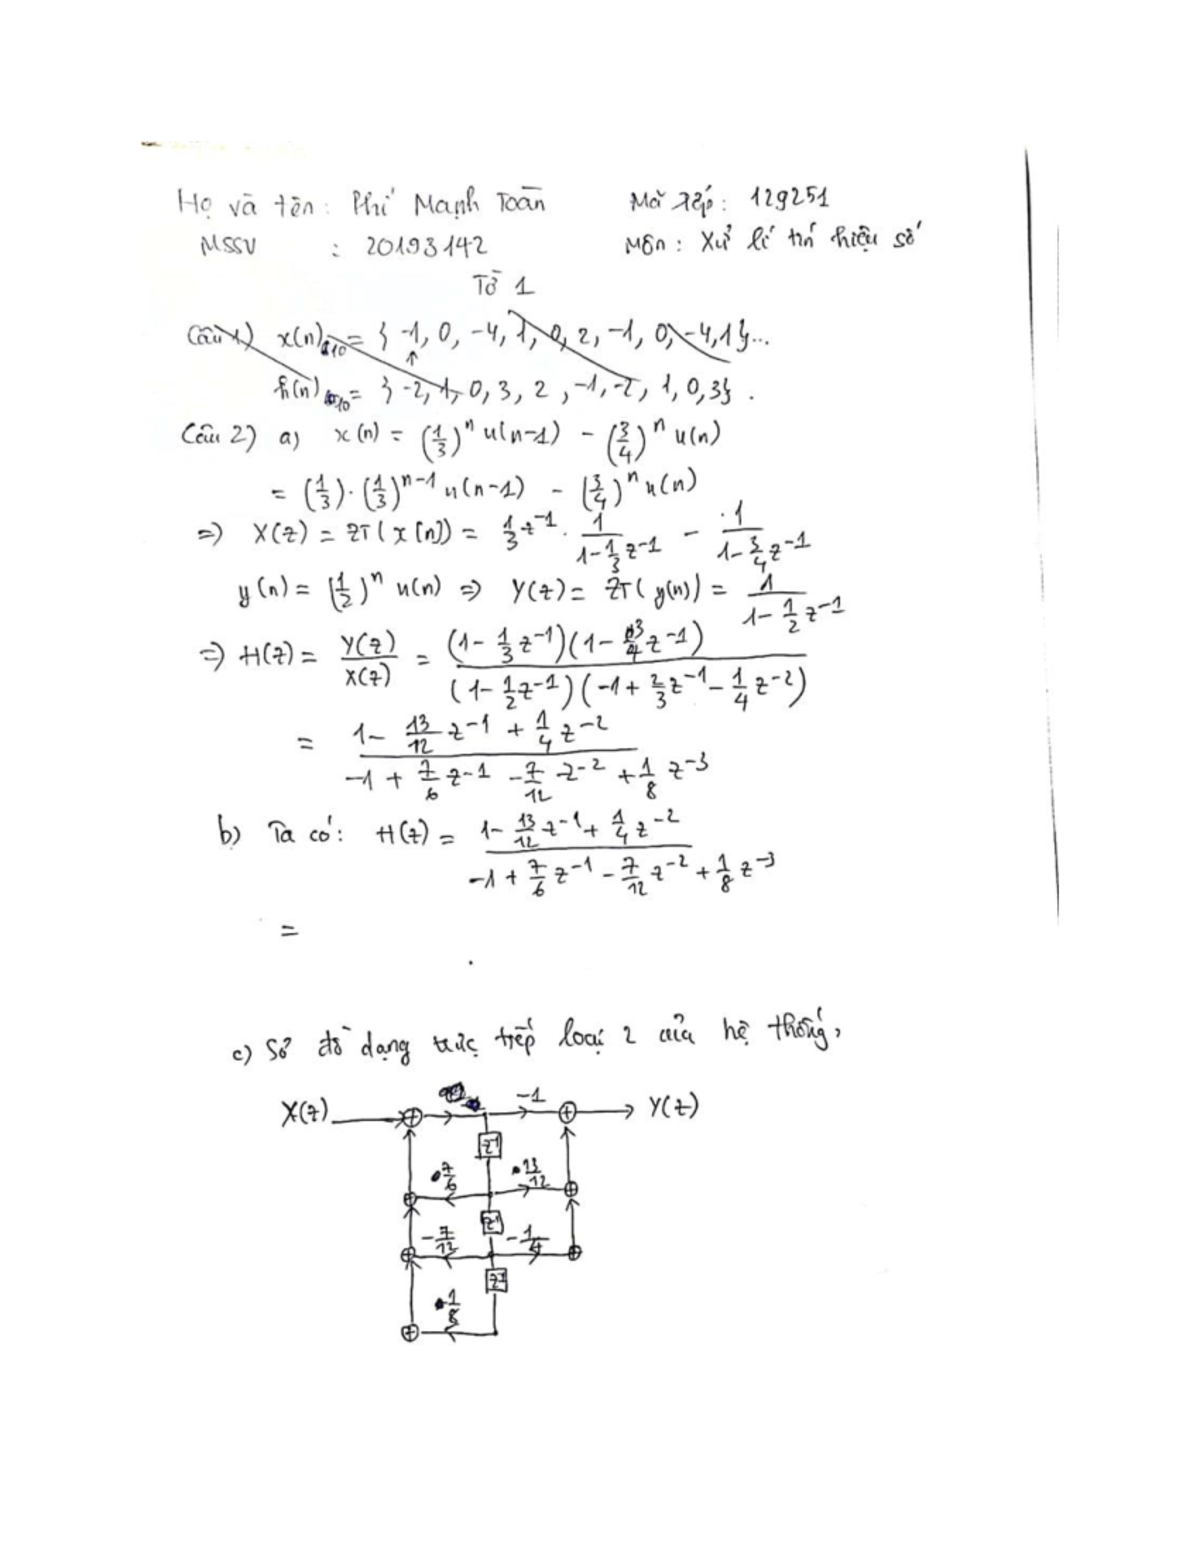 Họ và tên: Phí Mạnh Toàn Mã lớp: 129251
MSSV : 20193142 Môn: Xử lí tín hiệu số
Tờ 1
Câu 1) x(n)₁₀ = { -1, 0, -4, 1, 0, 2, -1, 0, -4, 1 }...
↑
h(n)₁₀ = { -2, 1, 0, 3, 2, -1, -2, 1, 0, 3 } .
Câu 2) a) x(n) = (1/3)^n u(n-1) - (3/4)^n u(n)
= (1/3) · (1/3)^{n-1} u(n-1) - (3/4)^n u(n)
=> X(z) = ZT(x[n]) = 1/3 z^-1 · 1/(1 - 1/3 z^-1) - 1/(1 - 3/4 z^-1)
y(n) = (1/2)^n u(n) => Y(z) = ZT(y(n)) = 1/(1 - 1/2 z^-1)
=> H(z) = Y(z)/X(z) = (1 - 1/3 z^-1)(1 - 3/4 z^-1) / (1 - 1/2 z^-1)(-1 + 2/3 z^-1 - 1/4 z^-2)
= (1 - 13/12 z^-1 + 1/4 z^-2) / (-1 + 7/6 z^-1 - 7/12 z^-2 + 1/8 z^-3)
b) Ta có: H(z) = (1 - 13/12 z^-1 + 1/4 z^-2) / (-1 + 7/6 z^-1 - 7/12 z^-2 + 1/8 z^-3)
=
c) Sơ đồ dạng trực tiếp loại 2 của hệ thống,
X(z) -1 Y(z)
z^-1
7/6 13/12
z^-1
-7/12 -1/4
z^-1
1/8